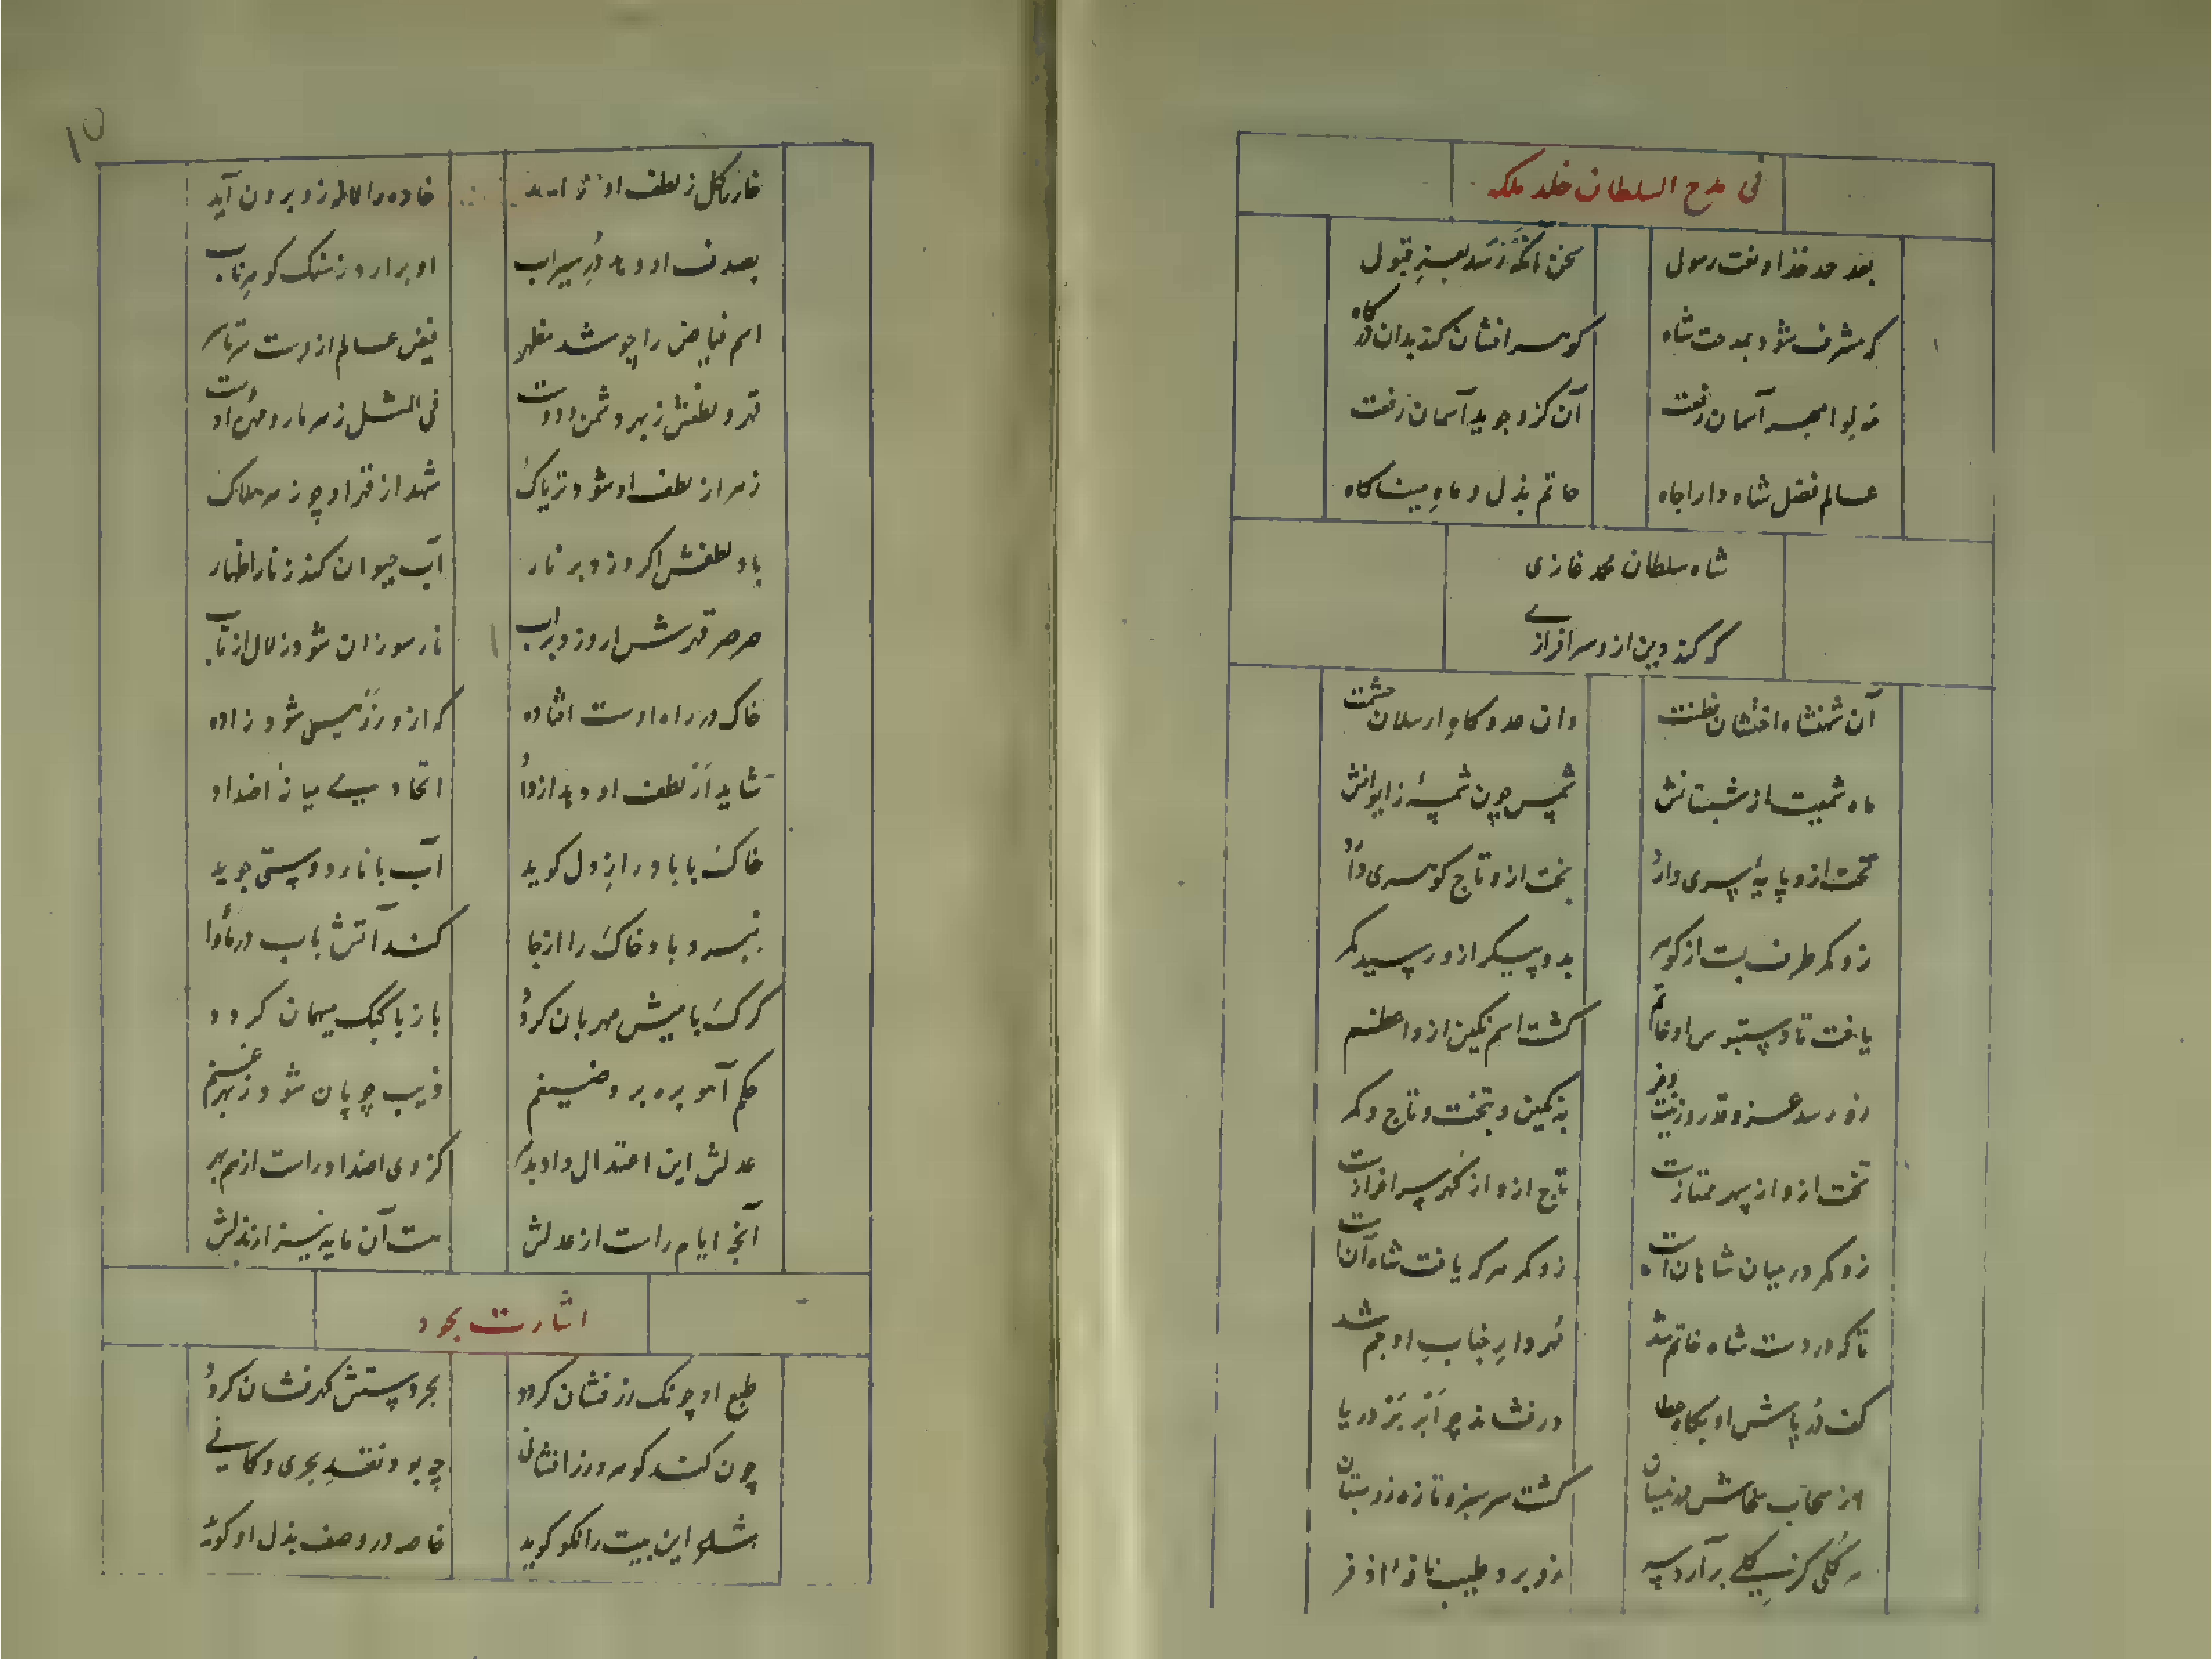 فی مدح السلطان خلد ملکه
بعد حمد خدا و نعت رسول
سخن آنگه رسد بعز قبول
که مشرف شود بمدحت شاه
گوهر افشان کند بدان درگاه
آن کزو جوید آسمان رفعت
عالم فضل شاه دارا جاه
حاتم بذل و ماه
شاه سلطان محمد غازی
که کند دین ازو سرافرازی
آن شهنشاه اخشان فطنت
وان عدو کاه ارسلان حشمت
ماه شمعیست از شبستانش
شمس چون شمسهٔ ز ایوانش
تخت ازو پایهٔ سری دارد
بخت ازو تاج گوهری دارد
زو کمر طرف بست از گوهر
بدو پیکر ازو رسید کمر
یافت تا دستبوس او خاتم
گشت اسم نگین ازو اعظم
زو رسد عز و قدر و زینت و فر
به نگین و بتخت و تاج و کمر
تخت ازو از سپهر ممتازست
تاج ازو از گهر سرافرازست
زو کمر در میان شاهان است
زو کمر هر که یافت شاه آن است
تا که در دست شاه خاتم شد
مهردار جناب او جم شد
کف در پاش او بگاه عطا
در فشاند چو ابر بر دریا
از سحاب سخاش در نیسان
گشت سرسبز و تازه زو بستان
هر گلی کز سر گلی برآرد سر
زو برد طیب نافهٔ اذفر
۱۵
خار گل ز لطف او
خاره را لاله زو برون آید
بصدف او دهد در سیراب
او برارد ز سنگ گوهر ناب
اسم فیاض را چو شد مظهر
فیض عالم ازوست سرتاسر
قهر و لطفش ز بهر دشمن و دوست
فی المثل زهر مار و مهرهٔ اوست
زهر از لطف او شود تریاک
شهد از قهر او چو زهر هلاک
باد لطفش اگر وزد بر نار
آب حیوان کند ز نار اظهار
صرصر قهرش ار وزد بر آب
نار سوزان شود زلال از تاب
خاک در راه اوست افتاده
که ازو رز همی شود زاده
شاید از لطف او دهد از داد
اتحادی میانهٔ اضداد
خاک با باد راز دل گوید
آب با نار دوستی جوید
نبرد باد خاک را از جا
کند آتش بآب در مأوا
گرگ با میش مهربان گردد
باز با کبک میهمان گردد
حکم آهو بره برد ضیغم
ذیب چوپان شود ز بهر غنم
عدلش این اعتدال داد بدهر
کز وی اضداد راست از هم بهر
آنچه ایام راست از عدلش
هست آن مایه نیز از بذلش
اشارت بجود
طبع او چونکه زر فشان گردد
بحر دستش گهر فشان گردد
چون کند گوهر و زر افشانی
چه بود نقد بحری و کانی
شاعر این بیت را نکو گوید
خاصه در وصف بذل او گوید